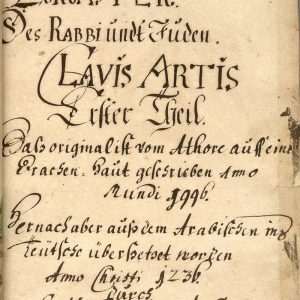 Des RABBI undt Juden.
CLAVIS ARTIS
Erster Theil.
Daß original ist vom Athore auff eine
Drachen haut geschrieben Anno
Mundi 1996.
Hernach aber auß dem Arabischen ins
Teütsche übersetzet worden
Anno Christi 1236.
Durch